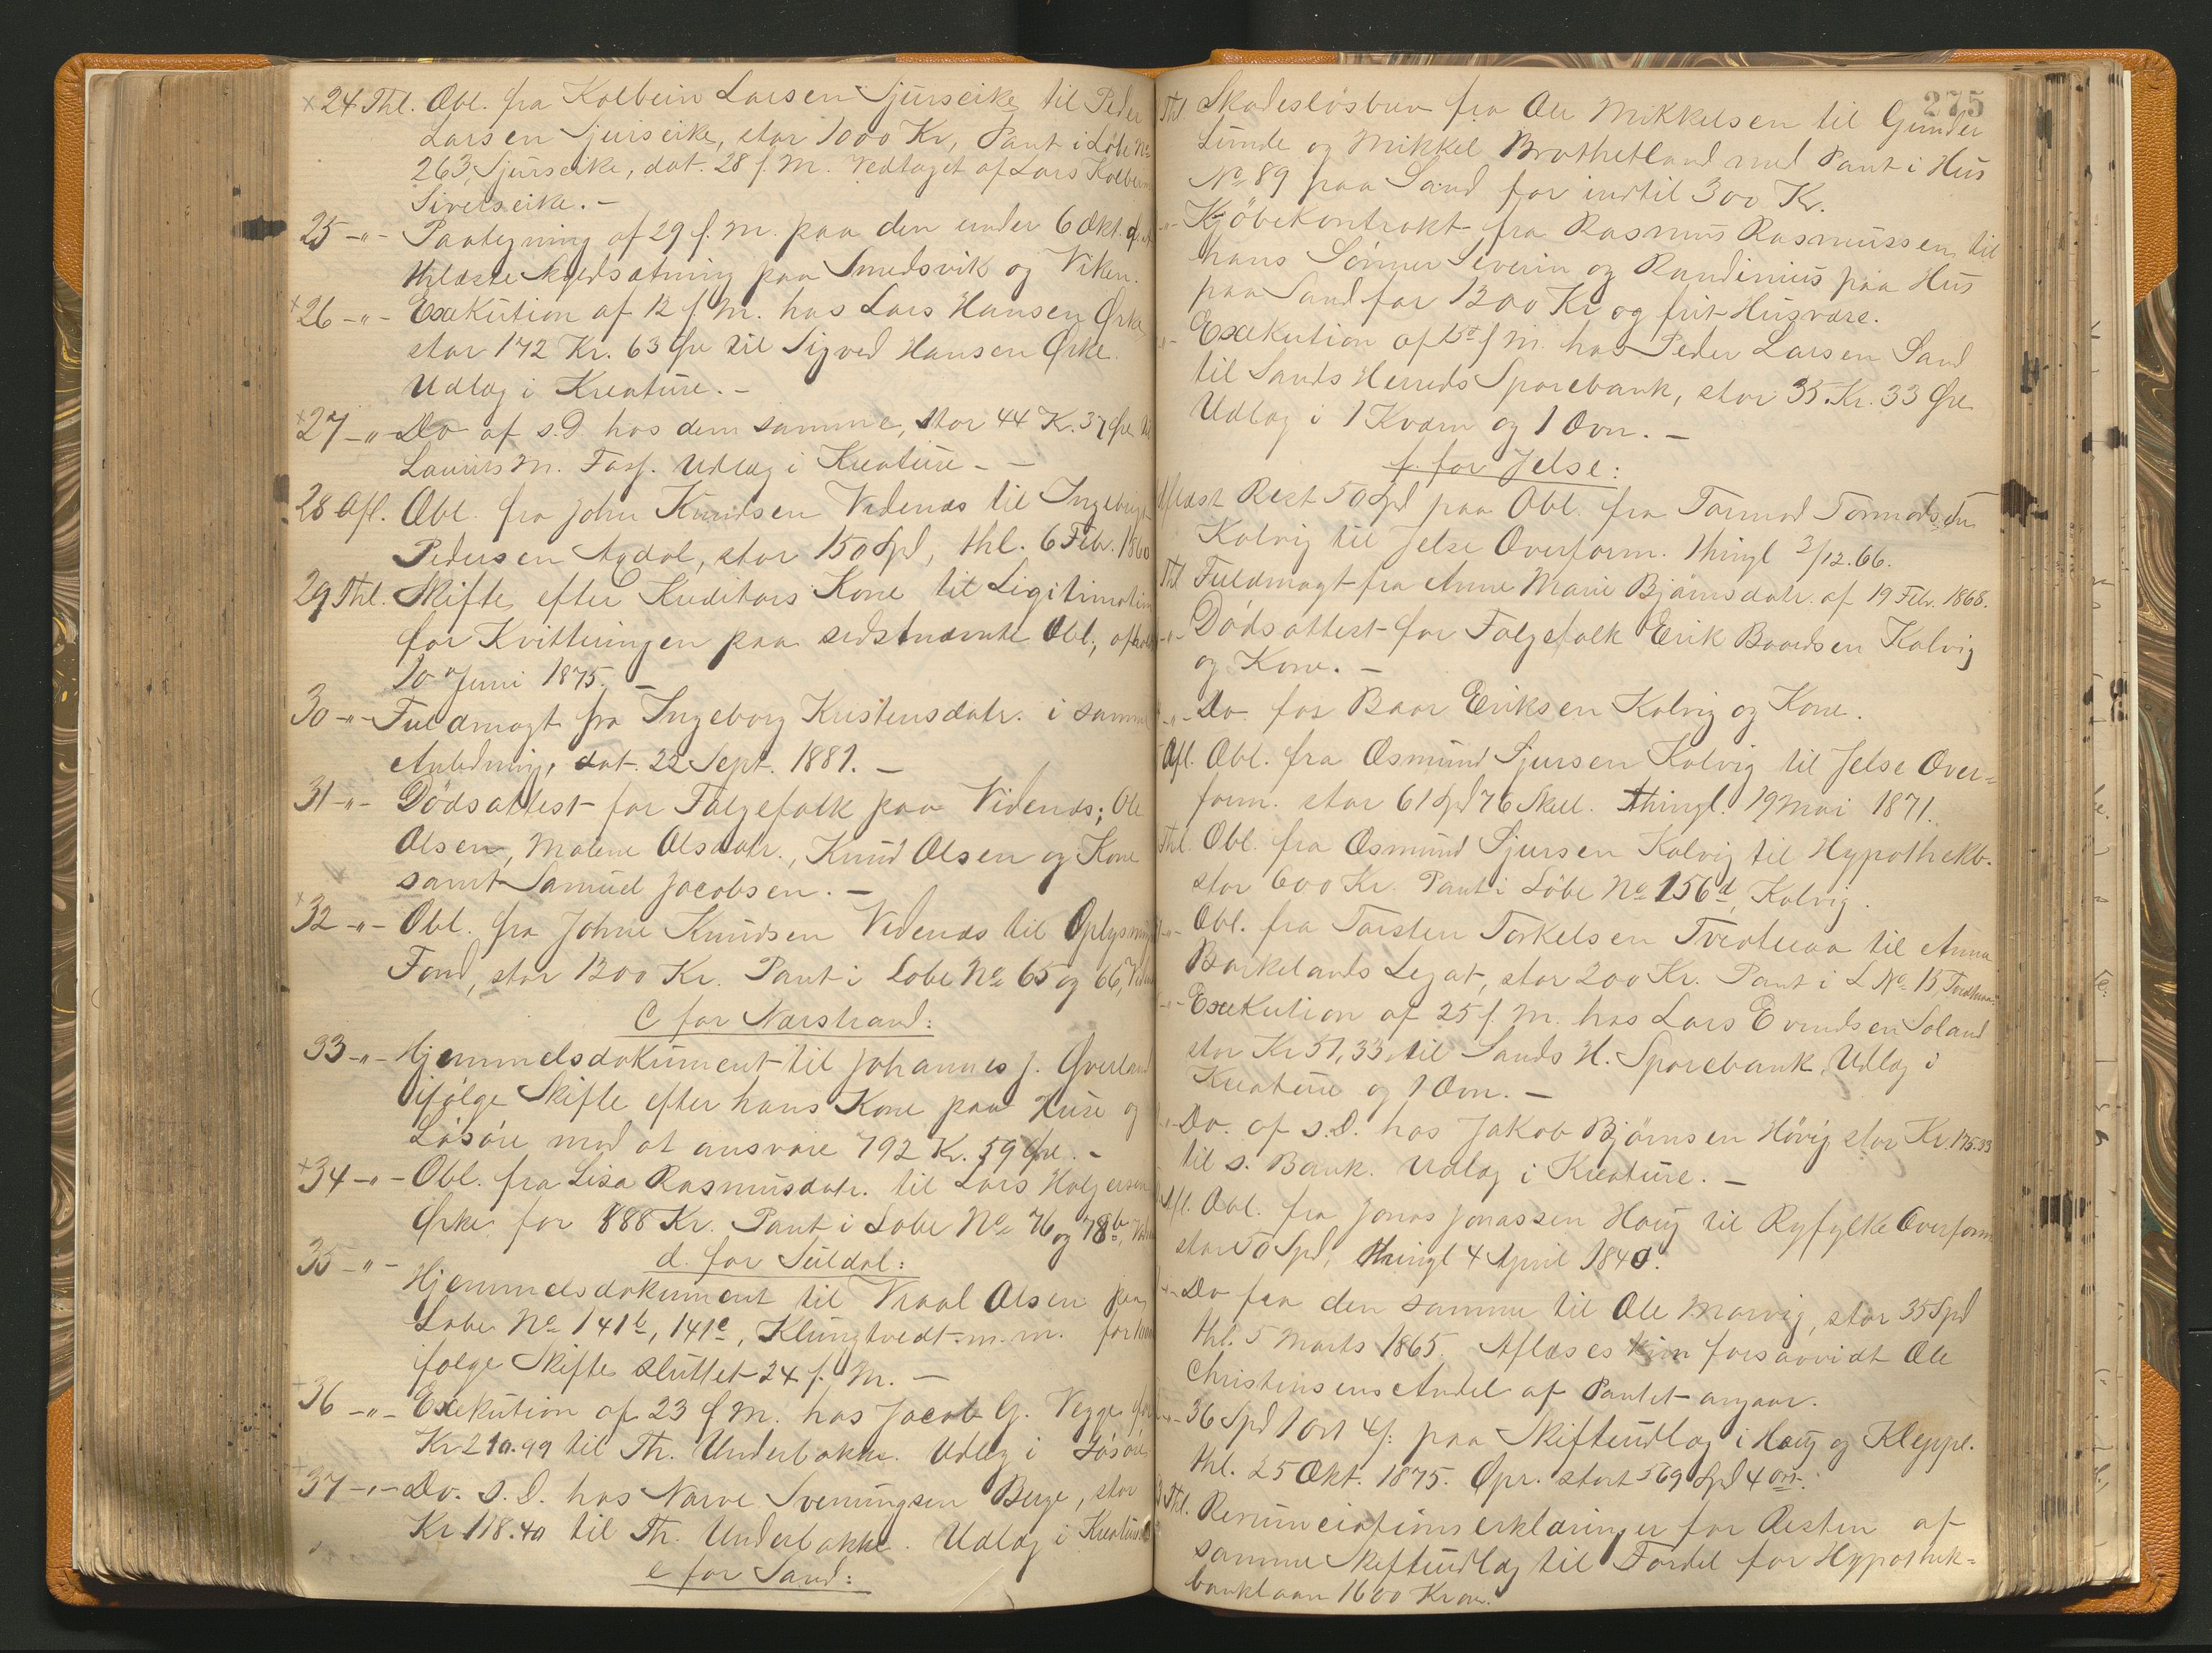 ×24 Thl. Obl. fra Kolbein Larsen Sjurseike til Peder
Larsen Sjurseike, stor 1000 Kr, Pant i Løbe No
263, Sjurseike, dat. 28 f. M. Vedtaget af Lars
25 -"- Paategning af 29 f. M. paa den under 6 Okt.
thlæste Skyldsætning paa Smedsvik og Viken.
×26 -"- Exekution af 12 f. M. hos Lars Hansen Ørke
stor 172 Kr. 63 Øre til Sigved Hansen Ørke.
Udlæg i Kreature. -
×27 -"- Do af s. D. hos dem samme, stor 44 K. 37 Øre til
Laurits M. Fasf. Udlæg i Kreature - -
28 Afl. Obl. fra John Knudsen Videnæs til
Pedersen Aadal, stor 150 Spd, thl. 6 Febr. 1860
29 Thl. Skifte efter Kreditors Kone til Legitimation
for Kvitteringen paa sidstnævnte Obl.,
10 Juni 1875. -
30 -"- Fuldmagt fra Ingeborg Kristensdatr. i samme
Anledning, dat. 22 Sept. 1881. -
31 -"- Dödsattest for Folgefolk paa Videnæs; Ole
Olsen, Malene Olsdatr., Knud Olsen og Kone
samt Samuel Jacobsen. -
×32 -"- Obl. fra Johne Knudsen Videnæs til
Fond, stor 1200 Kr. Pant i Lobe No 65 og 66,
C for Nærstrand:
33 -"- Hjemmelsdokument til Johannes J.
ifölge Skifte efter hans Kone paa Huse og
Lösöre mod at ansvare 792 Kr. 59 Øre. -
×34 -"- Obl. fra Lisa Rasmusdatr. til Lars Holgersen
Ørke for 888 Kr. Pant i Lobe No 76 og 78b,
d. for Suldal:
35 -"- Hjemmelsdokument til Vraal Olsen paa
Lobe No 141b, 141c, Klungtvedt m. m.
folge Skifte sluttet 24 f. M. -
36 -"- Exekution af 23 f M. hos Jacob G. Vegge for
Kr 210.99 til Th. Underbakke. Udlæg i Lösöre
37 -"- Do. s. D. hos Narve Sveningsen Berge, stor
Kr 118.40 til Th. Underbakke. Udlæg i Kreature
e for Sand:
275
Thl Skadeslösbrev fra Ole Mikkelsen til Gunder
Lunde og Mikkel Brathetland med Pant i Hus
No 89 paa Sand for indtil 300 Kr.
-"- Kjöbekontrakt fra Rasmus Rasmussen til
hans Sönner Severin og Randinius paa Hus
paa Sand for 1200 Kr og frit Husvære.
-"- Exekution af f M. hos Peder Larsen Sand
til Sands Herreds Sparebank, stor 35 Kr. 33 Øre
Udlæg i 1 Kværn og 1 Ovn. -
f. for Jelse:
Aflæst Rest 50 Spd paa Obl. fra Tormod Tormodsen
Kolvig til Jelse Overform. thingl 3/12.66.
Thl Fuldmagt fra Anne Marie Björnsdatr. af 19 Febr. 1868.
-"- Dödsattest for Folgefolk Erik Baardsen Kolvig
og Kone. -
-"- Do for Baar Eriksen Kolvig og Kone.
Afl. Obl. fra Osmund Sjursen Kolvig til Jelse Over=
form. stor 61 Spd 76 Skill. thingl. 19 Mai 1871.
Thl. Obl. fra Osmund Sjursen Kolvig til Hypothekb.
stor 600 Kr. Pant i Löbe No 156d, Kolvig.
-"- Obl. fra Torsten Torkelsen Tveteraa til Anna
Barkelands Legat, stor 200 Kr. Pant i L No 15,
-"- Exekution af 25 f. M. hos Lars Evindsen Soland
stor Kr 51,33 til Sands H. Sparebank, Udlæg i
Kreature og 1 Ovn. -
-"- Do. af s. D. hos Jakob Björnsen Hövig stor Kr. 175.33
til s. Bank. Udlæg i Kreature. -
Afl. Obl. fra Jonas Jonassen Houg til Ryfylke Overform
stor 50 Spd, thingl 4 April 1840.
-"- Do fra den samme til Ole Marvig, stor 35 Spd
thl. 5 Marts 1865. Aflæses kun forsaavidt Ole
Christensens Andel af Pantet angaar.
-"- 36 Spd 1 ort 4 f: paa Skifteudlæg i Houg og Kleppe.
thl. 25 Okt. 1875. Opr. stort 569 Spd 4 ort.
Thl. Renunciationserklæringer for Resten af
samme Skifteudlæg til Fordel for Hypothek=
banklaan 1600 Kroner.